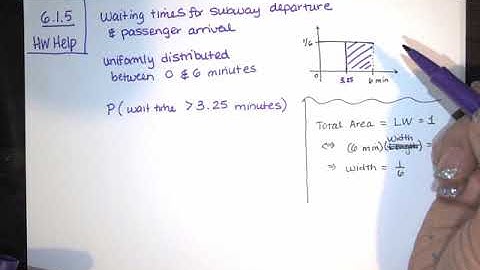 6.1.5
HW Help
Waiting times for subway departure
& passenger arrival
uniformly distributed
between 0 & 6 minutes
P(wait time > 3.25 minutes)
1/6
0
3.25
6 min
Total Area = LW = 1
⇔ (6 min)(Width Length) =
⇒ width = 1/6